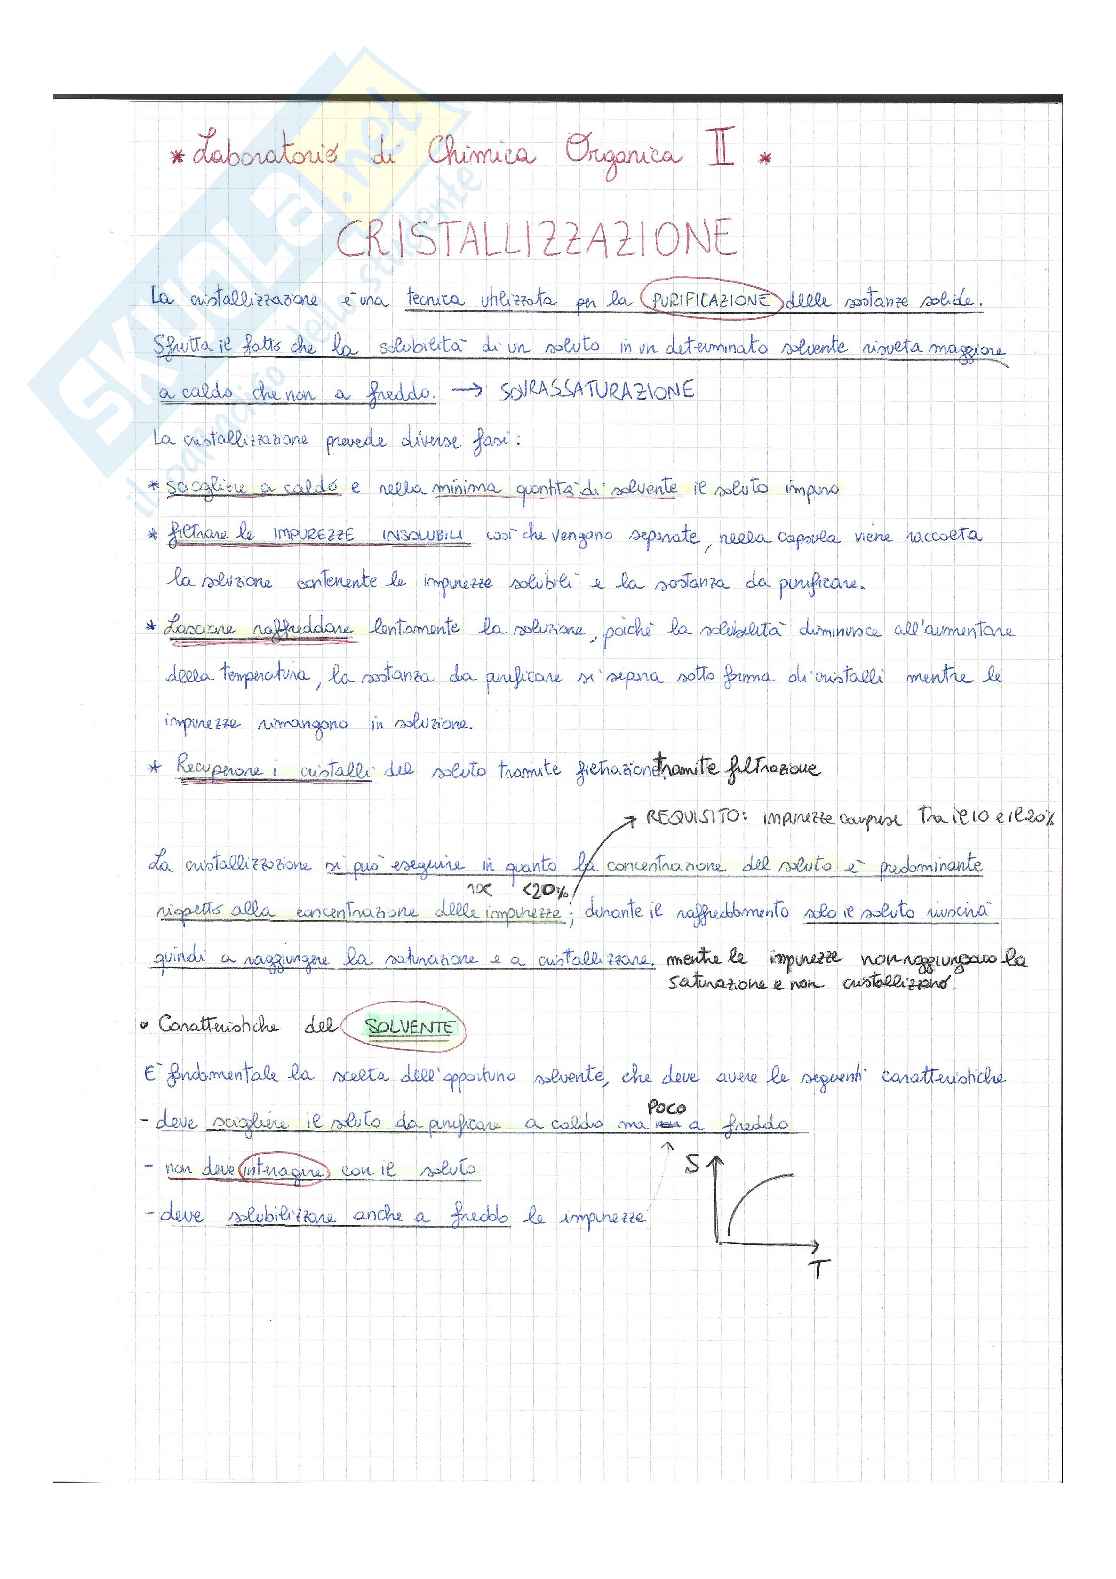 * Laboratorio di Chimica Organica II *
CRISTALLIZZAZIONE
La cristallizzazione è una tecnica utilizzata per la PURIFICAZIONE delle sostanze solide.
Sfrutta il fatto che la solubilità di un soluto in un determinato solvente risulta maggiore
a caldo che non a freddo. → SOVRASSATURAZIONE
La cristallizzazione prevede diverse fasi:
* sciogliere a caldo e nella minima quantità di solvente il soluto impuro
* filtrare le IMPUREZZE INSOLUBILI così che vengano separate, nella capsula viene raccolta
la soluzione contenente le impurezze solubili e la sostanza da purificare.
* Lasciare raffreddare lentamente la soluzione, poiché la solubilità diminuisce all'aumentare
della temperatura, la sostanza da purificare si separa sotto forma di cristalli mentre le
impurezze rimangono in soluzione.
* Recuperare i cristalli del soluto tramite filtrazione tramite filtrazione
REQUISITO: impurezze comprese tra il 10 e il 20%
La cristallizzazione si può eseguire in quanto la concentrazione del soluto è predominante
<20%
rispetto alla concentrazione delle impurezze; durante il raffreddamento solo il soluto riuscirà
quindi a raggiungere la saturazione e a cristallizzare. mentre le impurezze non raggiungono la
saturazione e non cristallizzano.
• Caratteristiche del SOLVENTE
E' fondamentale la scelta dell'opportuno solvente, che deve avere le seguenti caratteristiche
POCO
- deve sciogliere il soluto da purificare a caldo ma non a freddo
- non deve interagire con il soluto
- deve solubilizzare anche a freddo le impurezze
S
T
SKUOLA.net
il paradiso dello studente